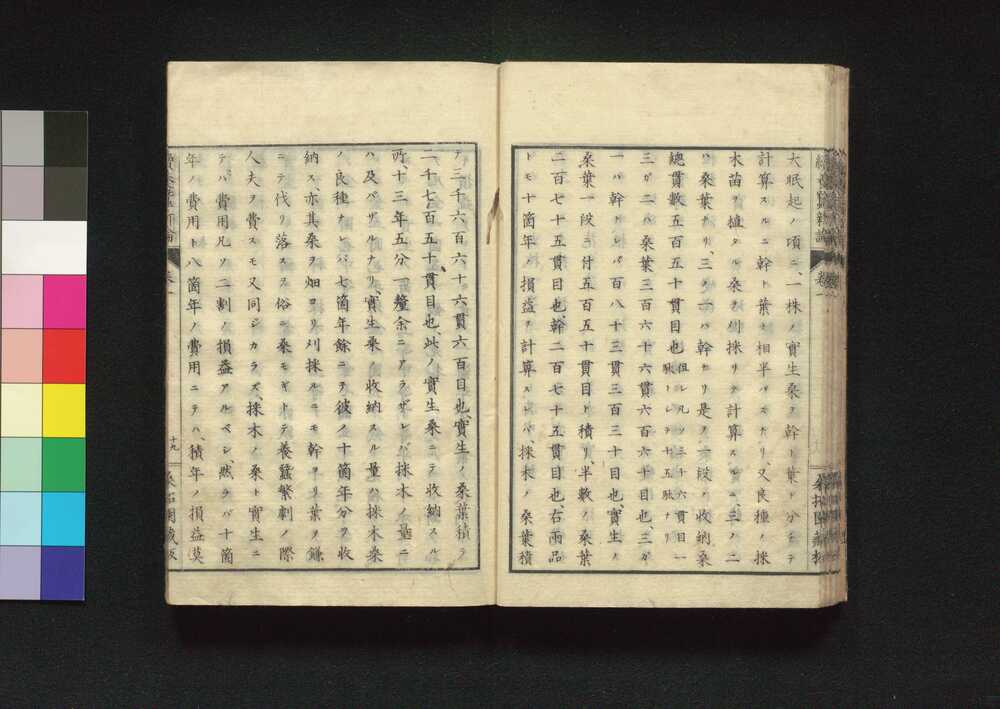 大眠起ノ頃ニ、一株ノ實生桑ヲ幹ト葉ト分チテ
計算スルニ幹ト葉ト相半バスナリ又良種ノ採
木苗ヲ植タル桑ヲ刈採リテ計算スルニ、三ノ二
ハ桑葉ナリ、三ガ一ハ幹ナリ是ノ一段ノ收納桑
總貫數五百五十貫目也
但シ凡ソ三十六貫目一
駄トシテ十五駄ナリ
三ガ二ハ桑葉三百六十六貫六百六十目也、三ガ
一ハ幹トシバ百八十三貫三百三十目也、實生ノ
桑葉一段ニ付五百五十貫目ト積リ、半數ノ桑葉
二百七十五貫目也、幹二百七十五貫目也、右兩品
トモ十箇年ノ損益ヲ計算スレバ、採木ノ桑葉積
テ三千六百六十六貫六百目也、實生ノ桑葉積テ
二千七百五十貫目也、此ノ實生桑ニテ收納スル
所、十三年五分一釐余ニアラザレバ採木ノ量ニ
ハ及バザルナリ、實生桑ノ收納スル量ハ採木桑
ノ良種ナレバ七箇年餘ニテ、彼ノ十箇年分ヲ收
納ス、亦其桑ヲ畑ヨリ刈採ルニモ幹ヨリ葉ヲ鎌
ニテ伐リ落スス俗ニ桑モギトテ養蠶繁劇ノ際
人夫ヲ費スモ又同ジカラズ、採木ノ桑ト實生ニ
テハ費用凡ソ二割ノ損益アルベシ、然ラバ十箇
年ノ費用ト八箇年ノ費用ニテハ、積年ノ損益莫
卷一
十九